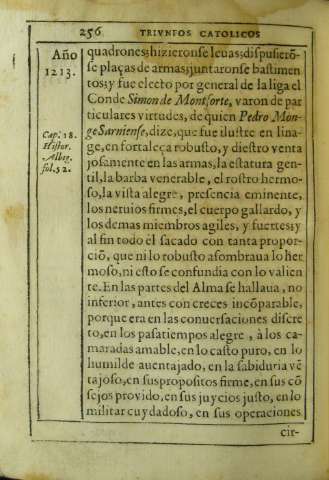 256 TRIVNFOS CATOLICOS
Año
1213.
Cap. 18.
Histor.
Albig.
fol. 52.
quadrones; hizieronse leuas; dispusierõ-
se plaças de armas; juntaronse bastimen
tos; y fue electo por general de la liga el
Conde Simon de Montforte, varon de par
ticulares virtudes, de quien Pedro Mon-
ge Sarniense, dize, que fue ilustre en lina-
ge, en fortaleça robusto, y diestro venta
josamente en las armas, la estatura gen-
til, la barba venerable, el rostro hermo-
so, la vista alegre, presencia eminente,
los neruios firmes, el cuerpo gallardo, y
los demas miembros agiles, y fuertes; y
al fin todo èl sacado con tanta propor-
ciõ, que ni lo robusto asombraua lo her
moso, ni esto se confundia con lo valien
te. En las partes del Alma se hallaua, no
inferior, antes con creces incõparable,
porque era en las conuersaciones discre
to, en los pasatiempos alegre, à los ca-
maradas amable, en lo casto puro, en lo
humilde auentajado, en la sabiduria vẽ
tajoso, en sus propositos firme, en sus cõ
sejos prouido, en sus juycios justo, en lo
militar cuydadoso, en sus operaciones
cir-